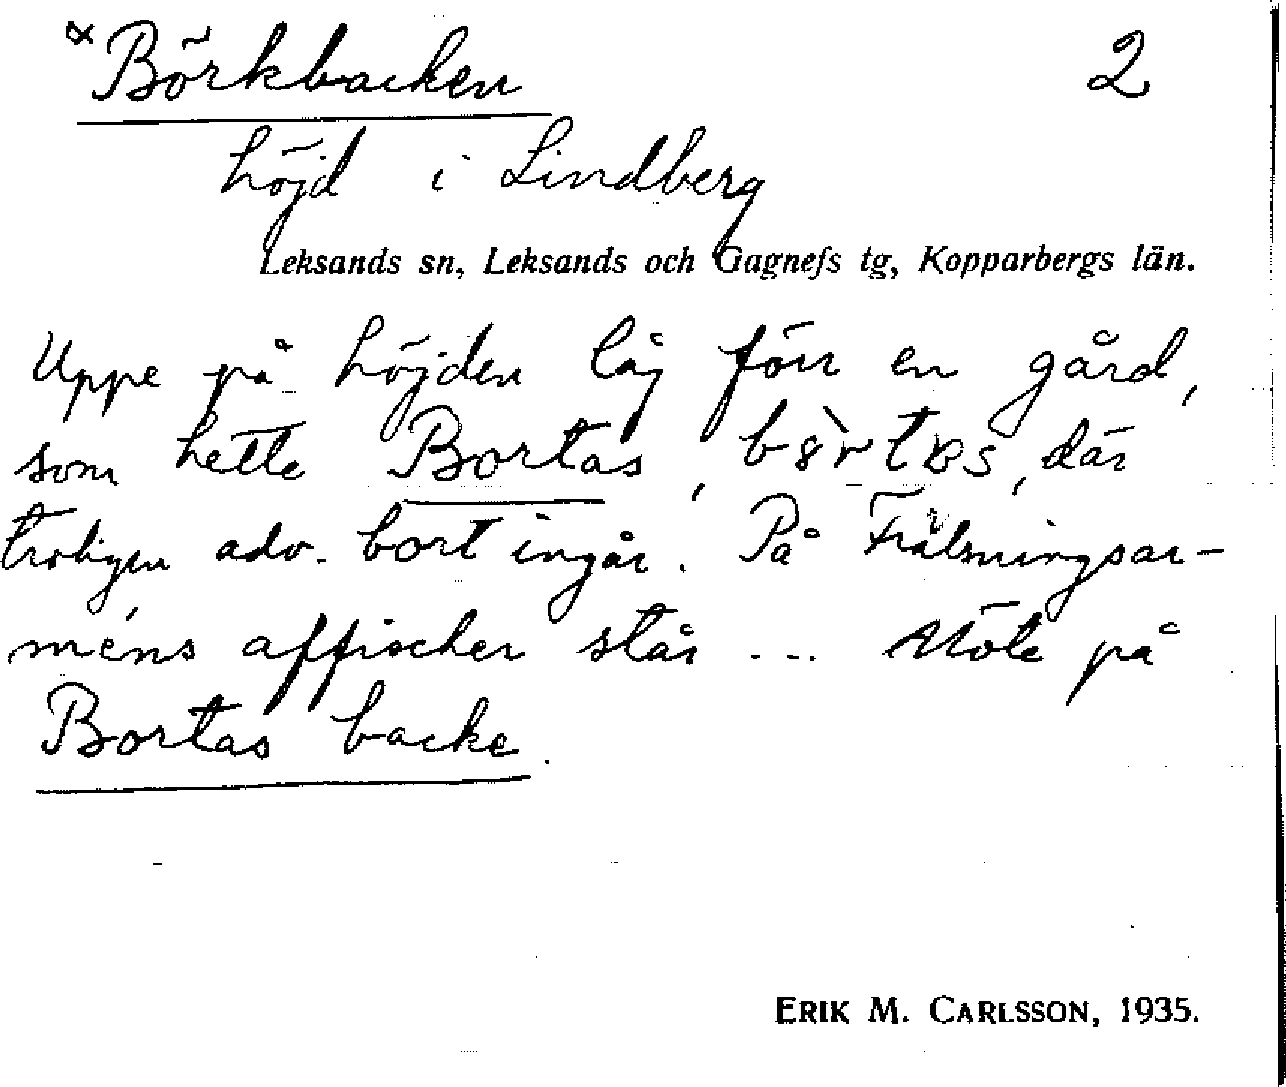 *Börkbacken 2
höjd i Lindberg
Leksands sn, Leksands och Gagnefs tg, Kopparbergs län.
Uppe på höjden låg förr en gård,
som hette Bortas, där
troligen adv. bort ingår. På Frälsningsar-
méns affischer står ... Möte på
Bortas backe.
ERIK M. CARLSSON, 1935.